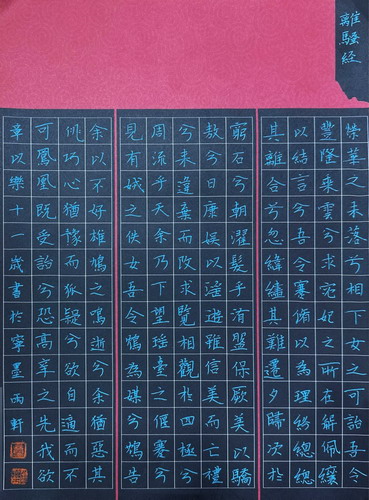 離騷經
榮華之未落兮相下女之可詒吾令
豐隆乘雲兮求宓妃之所在解佩纕
以結言兮吾令蹇脩以為理紛總總
其離合兮忽緯繣其難遷夕歸次於
窮石兮朝濯髮乎洧盤保厥美以驕
敖兮日康娛以淫遊雖信美而亡禮
兮來違棄而改求覽相觀於四極兮
周流乎天余乃下望瑤臺之偃蹇兮
見有娀之佚女吾令鴆為媒兮鴆告
余以不好雄鳩之鳴逝兮余猶惡其
佻巧心猶豫而狐疑兮欲自適而不
可鳳凰既受詒兮恐高辛之先我欲
章以樂十一歲書於寧墨雨軒